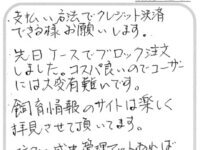 ・支払い方法でクレジット決済
できる様お願いします。
・先日ケースでブロック注文
しました。コスパ良いのでユーザー
には大変有難いです。
・飼育情報のサイトは楽しく
拝見させて頂いてます。